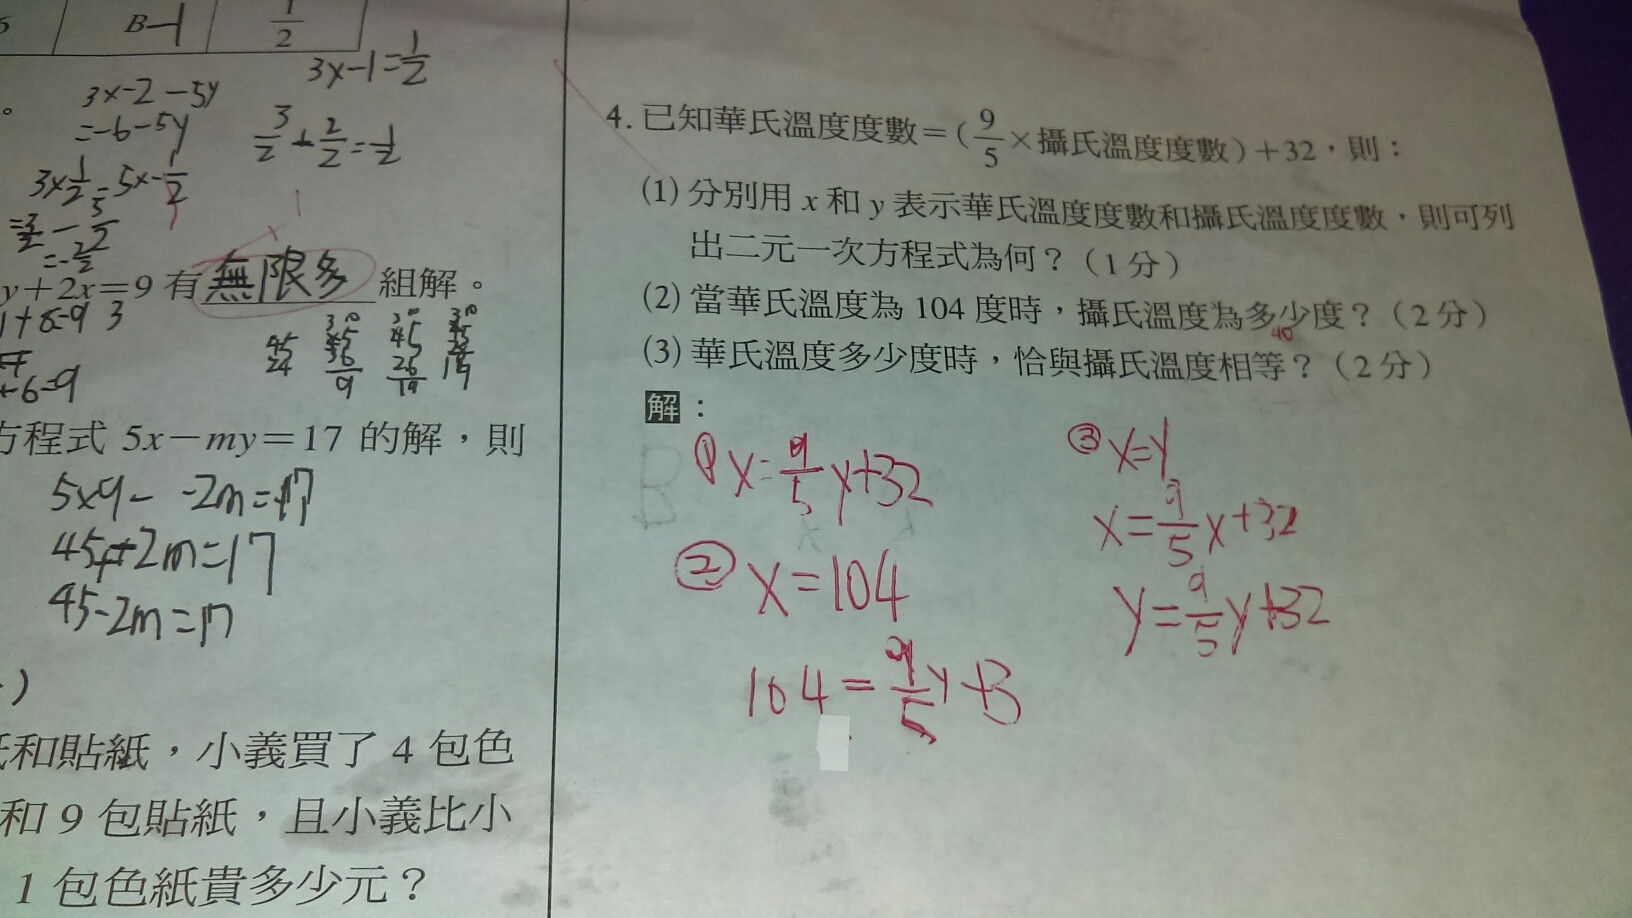 B -1 1/2
3x-1=1/2
3x-2-5y
=-6-5y
3/2+2/2=-1/2
y+2x=9有無限多組解。
+6=9
方程式 5x-my=17 的解,則
5×9- -2m=17
45+2m=17
45-2m=17
和貼紙,小義買了 4 包色
和 9 包貼紙,且小義比小
1 包色紙貴多少元?
4. 已知華氏溫度度數=(9/5×攝氏溫度度數)+32,則:
(1) 分別用 x 和 y 表示華氏溫度度數和攝氏溫度度數,則可列
出二元一次方程式為何?(1分)
(2) 當華氏溫度為 104 度時,攝氏溫度為多少度?(2分)
40
(3) 華氏溫度多少度時,恰與攝氏溫度相等?(2分)
解:
① x=9/5y+32
② x=104
104=9/5y+3
③ x=y
x=9/5x+32
y=9/5y+32